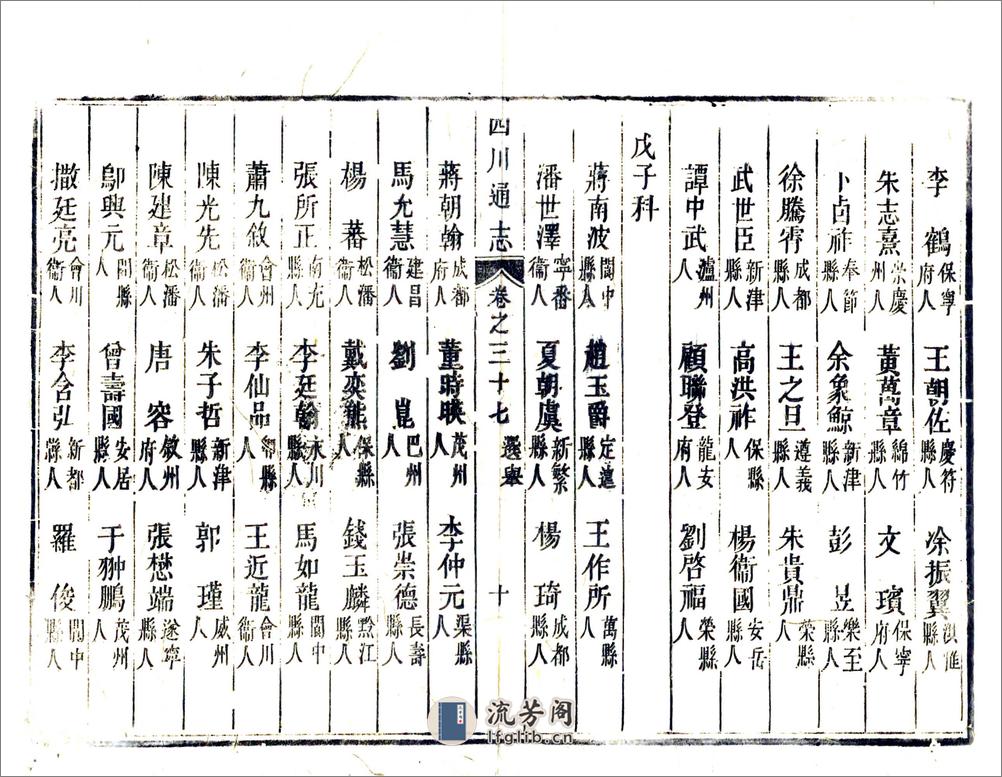 李鶴保寧府人 王朝佐慶符人 凃振翼洪雅縣人
朱志熹崇慶州人 黃萬章綿竹人 文璸保寧府人
卜卣祚奉節縣人 余象鯨新津人 彭昱樂至縣人
徐騰霄成都縣人 王之旦遵義人 朱貴鼎榮縣人
武世臣新津縣人 高洪祚保縣人 楊衞國安岳縣人
譚中武瀘州人 顧聯登龍安府人 劉啓福榮縣人
戊子科
蔣南波閬中縣人 趙玉爵定遠縣人 王作所萬縣人
潘世澤寧番衞人 夏朝虞新繁縣人 楊琦成都縣人
四川通志 卷之三十七 選舉 十
蔣朝翰成都府人 董時映茂州人 李仲元渠縣人
馬允慧建昌衞人 劉崑巴州人 張崇德長壽縣人
楊蕃松潘衞人 戴奕熊保縣人 錢玉麟黔江人
張所正南充縣人 李廷翰永川縣人 馬如龍閬中縣人
蕭九敘會川衞人 李仙品郫縣人 王近龍會川衞人
陳光先松潘衞人 朱子哲新津縣人 郭瑾威州人
陳建章松潘衞人 唐容敘州府人 張懋端遂寧縣人
鄔興元閬縣人 曾壽國安居縣人 于翀鵬茂州人
撒廷亮會川衞人 李含弘新都縣人 羅俊閬中縣人
流芳阁
lfglib.cn